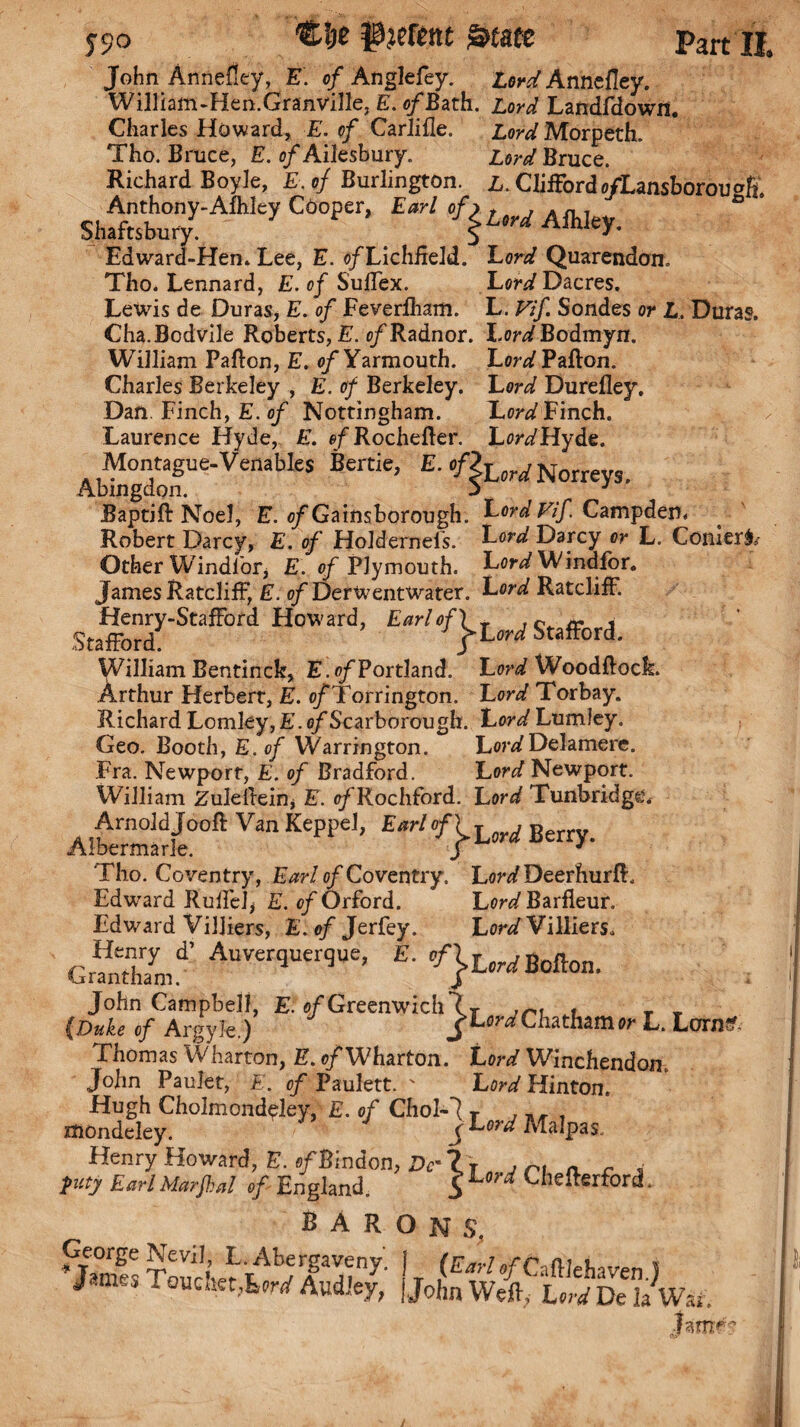 590 The Preſent State Part II.
John Anneſley, E. of Angleſey. Lord Anneſley.
William-Hen. Granville, E. of Bath. Lord Landſdown.
Charles Howard, E. of Carliſle. Lord Morpeth.
Tho. Bruce, E. of Ailesbury. Lord Bruce.
Richard Boyle, E. of Burlington. L. Clifford of Lansborough.
Anthony-Aſhley Cooper, Earl of Shaftsbury. } Lord Aſhley.
Edward-Hen. Lee, E. of Lichfield. Lord Quarendon.
Tho. Lennard, E. of Suſſex. Lord Dacres.
Lewis de Duras, E. of Feverſham. L. Viſ. Sondes or L. Duras.
Cha. Bodvile Roberts, E. of Radnor. Lord Bodmyn.
William Paſton, E. of Yarmouth. Lord Paſton.
Charles Berkeley , E. of Berkeley. Lord Dureſley.
Dan. Finch, E. of Nottingham. Lord Finch.
Laurence Hyde, E. of Rocheſter. Lord Hyde.
Montague-Venables Bertie, E. of Abingdon. } Lord Norreys.
Baptiſt Noel, E. of Gainsborough. Lord Viſ. Campden.
Robert Darcy, E. of Holderneſs. Lord Darcy or L. Coniers.
Other Windſor, E. of Plymouth. Lord Windſor.
James Ratcliff, E. of Derwentwater. Lord Ratcliff.
Henry-Stafford Howard, Earl of Stafford. } Lord Stafford.
William Bentinck, E. of Portland. Lord Woodſtock.
Arthur Herbert, E. of Torrington. Lord Torbay.
Richard Lomley, E. of Scarborough. Lord Lumley.
Geo. Booth, E. of Warrington. Lord Delamere.
Fra. Newport, E. of Bradford. Lord Newport.
William Zuleſtein, E. of Rochford. Lord Tunbridge.
Arnold Jooſt Van Keppel, Earl of Albermarle. } Lord Berry.
Tho. Coventry, Earl of Coventry. Lord Deerhurſt.
Edward Ruſſel, E. of Orford. Lord Barfleur.
Edward Villiers, E. of Jerſey. Lord Villiers.
Henry d' Auverquerque, E. of Grantham. } Lord Boſton.
John Campbell, E. of Greenwich (Duke of Argyle.) } Lord Chatham or L. Lorne.
Thomas Wharton, E. of Wharton. Lord Winchendon.
John Paulet, E. of Paulett. Lord Hinton.
Hugh Cholmondeley, E. of Cholmondeley. } Lord Malpas.
Henry Howard, E. of Bindon, Deputy Earl Marſhal of England. } Lord Cheſterford.
BARONS.
George Nevil, L. Abergaveny.
James Touchet, Lord Audley,
(Earl of Caſtlehaven.)
John Weſt, Lord De la War.
James